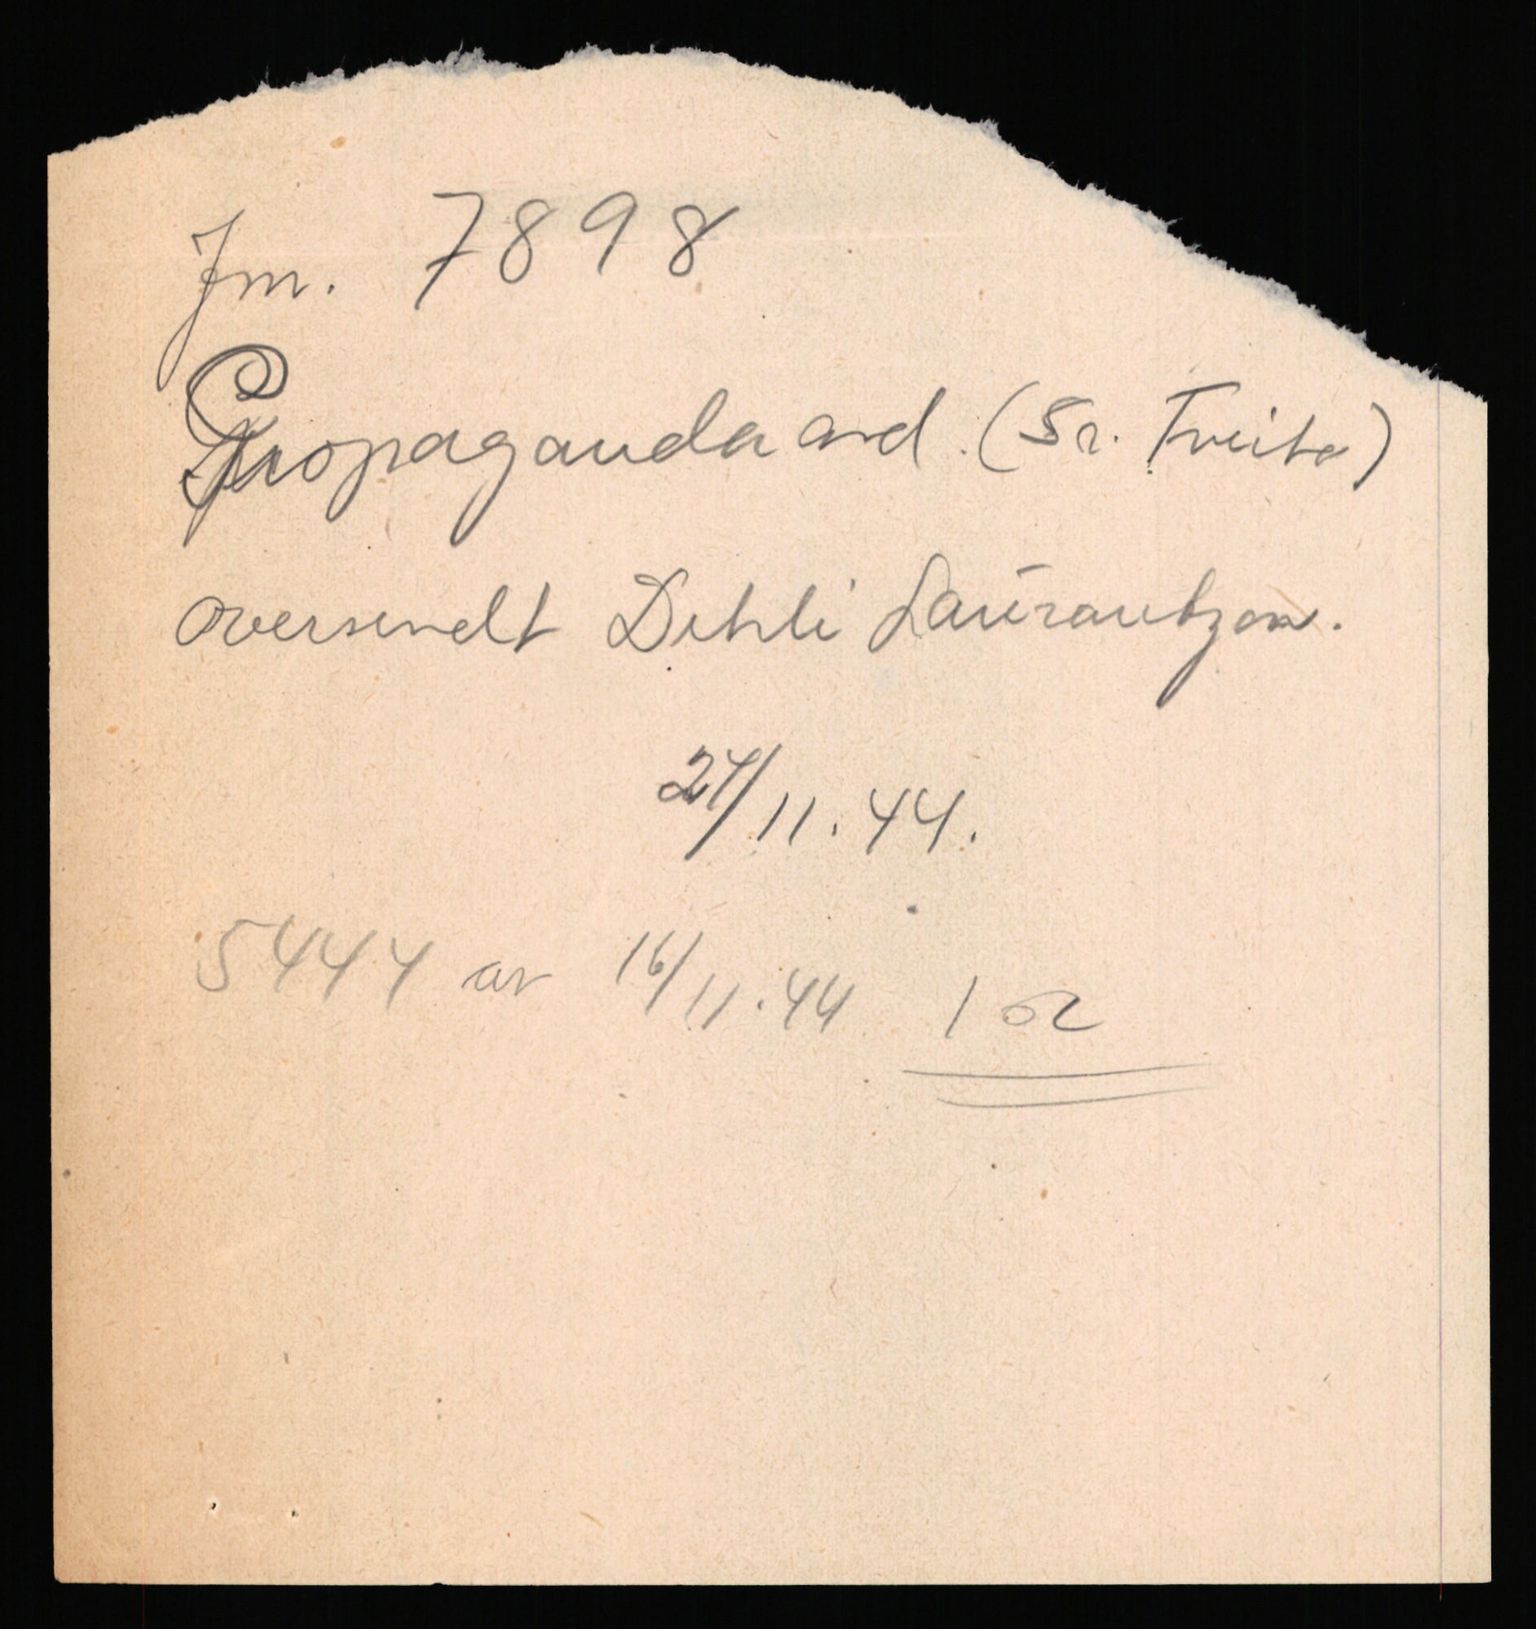 Jm. 7898
Propaganda avd. (Sr. Tveite)
oversendt Dehli Laurantzon.
24/11.44.
5444 av 16/11.44 1